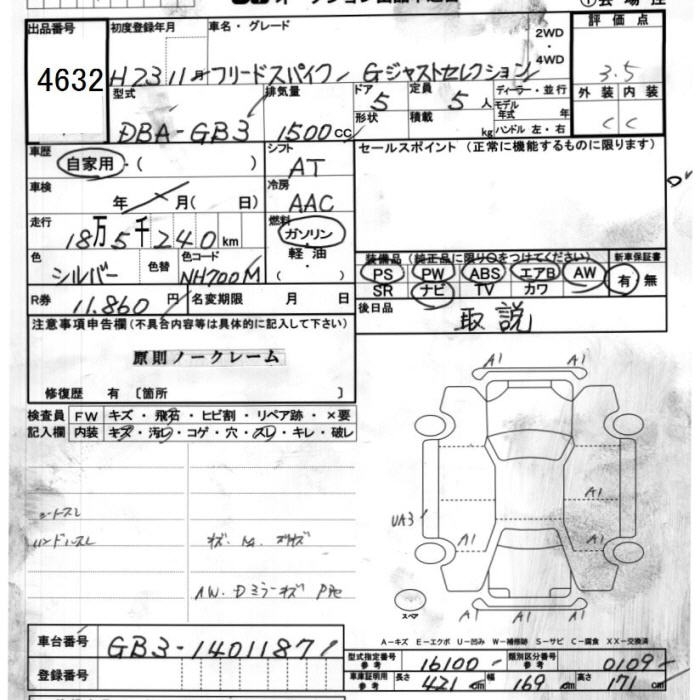 出品番号 初度登録年月 車名・グレード 2WD ・ 4WD 評価点
4632 H23 11月 フリードスパイク Gジャストセレクション 3.5
型式 排気量 ドア 5 定員 5人 ディーラー・並行 外装 内装
DBA-GB3 1500cc 形状 積載 kg モデル年式 年 C C
ハンドル 左・右
車歴 自家用・( ) シフト AT セールスポイント (正常に機能するものに限ります)
車検 年 月( 日) 冷房 AAC
走行 18万5千240km 燃料 ガソリン 軽・油 ( )
色 シルバー 色替 色コード NH700M
装備品 (純正品に限り○をつけてください) 新車保証書
PS PW ABS エアB AW 有・無
SR ナビ TV カワ
R券 11,860円 名変期限 月 日 後日品 取説
注意事項申告欄(不具合内容等は具体的に記入して下さい)
原則ノークレーム
修復歴 有 〔箇所 〕
検査員 FW キズ・飛石・ヒビ割・リペア跡・×要
記入欄 内装 キズ・汚レ・コゲ・穴・スレ・キレ・破レ
シートスレ
ハンドルスレ
A1 A1
A1
UA3
A1 A1
A1 A1
スペア
A-キズ E-エクボ U-凹み W-補修跡 S-サビ C-腐食 XX-交換済
車台番号 GB3-1401187
登録番号
型式指定番号 参考 16100 類別区分番号 参考 0109
車庫証明用 参考 長さ 421cm 幅 169cm 高さ 171cm